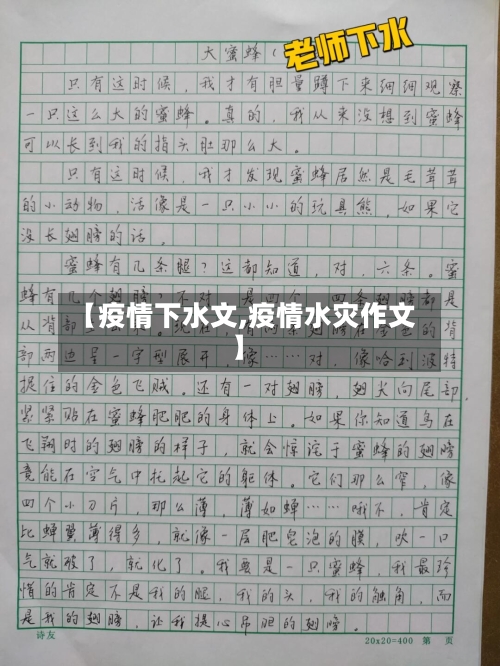 大蜜蜂(
老师下水
只有这时候，我才有胆量蹲下来细细观察
一只这么大的蜜蜂。真的，我从来没想到蜜蜂
可以长到我的指头肚那么大。
只有这时候，我才发现蜜蜂居然是毛茸茸
的小动物，活像是一只小小的玩具熊，如果它
没长翅膀的话。
蜜蜂有几条腿？这都知道，对，六条。蜜
蜂有几个翅膀？不对，是四个，四条翅膀都是
从背部
【疫情下水文,疫情水灾作文
】
部两边呈一字型展开，像……对，像哈利波特
捉住的金色飞贼。还有一对翅膀，翅尖向尾部，
紧紧贴在蜜蜂肥肥的身体上。如果你知道鸟在
飞翔时的翅膀的样子，就会惊诧于蜜蜂的翅膀
竟能在空气中托起它的躯体。它们那么窄，像
四个小刀片，那么薄，薄如蝉……哦不，肯定
比蝉翼薄得多，就像一层肥皂泡的膜，吹一口
气就破了，就化了。我要是一只蜜蜂，我最珍
惜的肯定不是我的腿，我的头，我的触角，而
是我的翅膀，让我提心吊胆的翅膀。
诗友
20x20=400 第 页